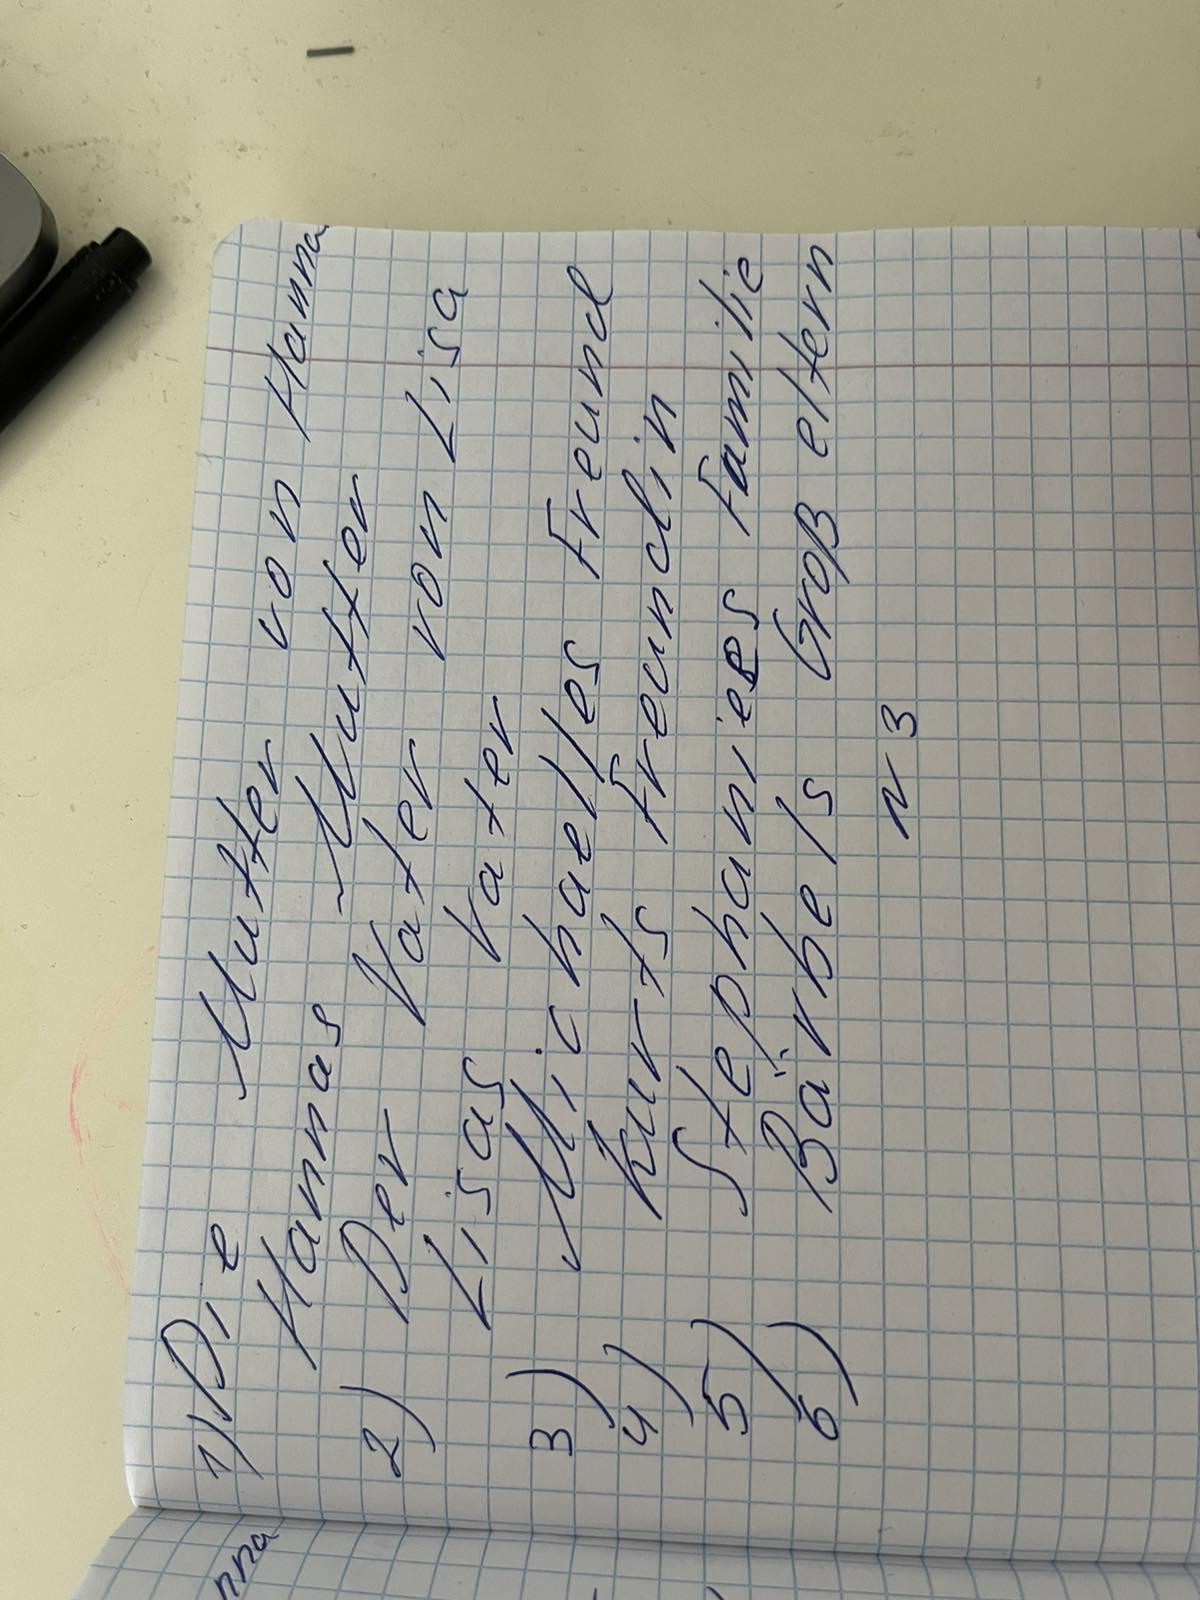 1) Die Mutter von Hanna
Hannas Mutter
2) Der Vater von Lisa
Lisas Vater
3) Michaelles Freund
4) Kurts Freundin
5) Stephanies Familie
6) Bärbels Groß eltern
N 3
nna